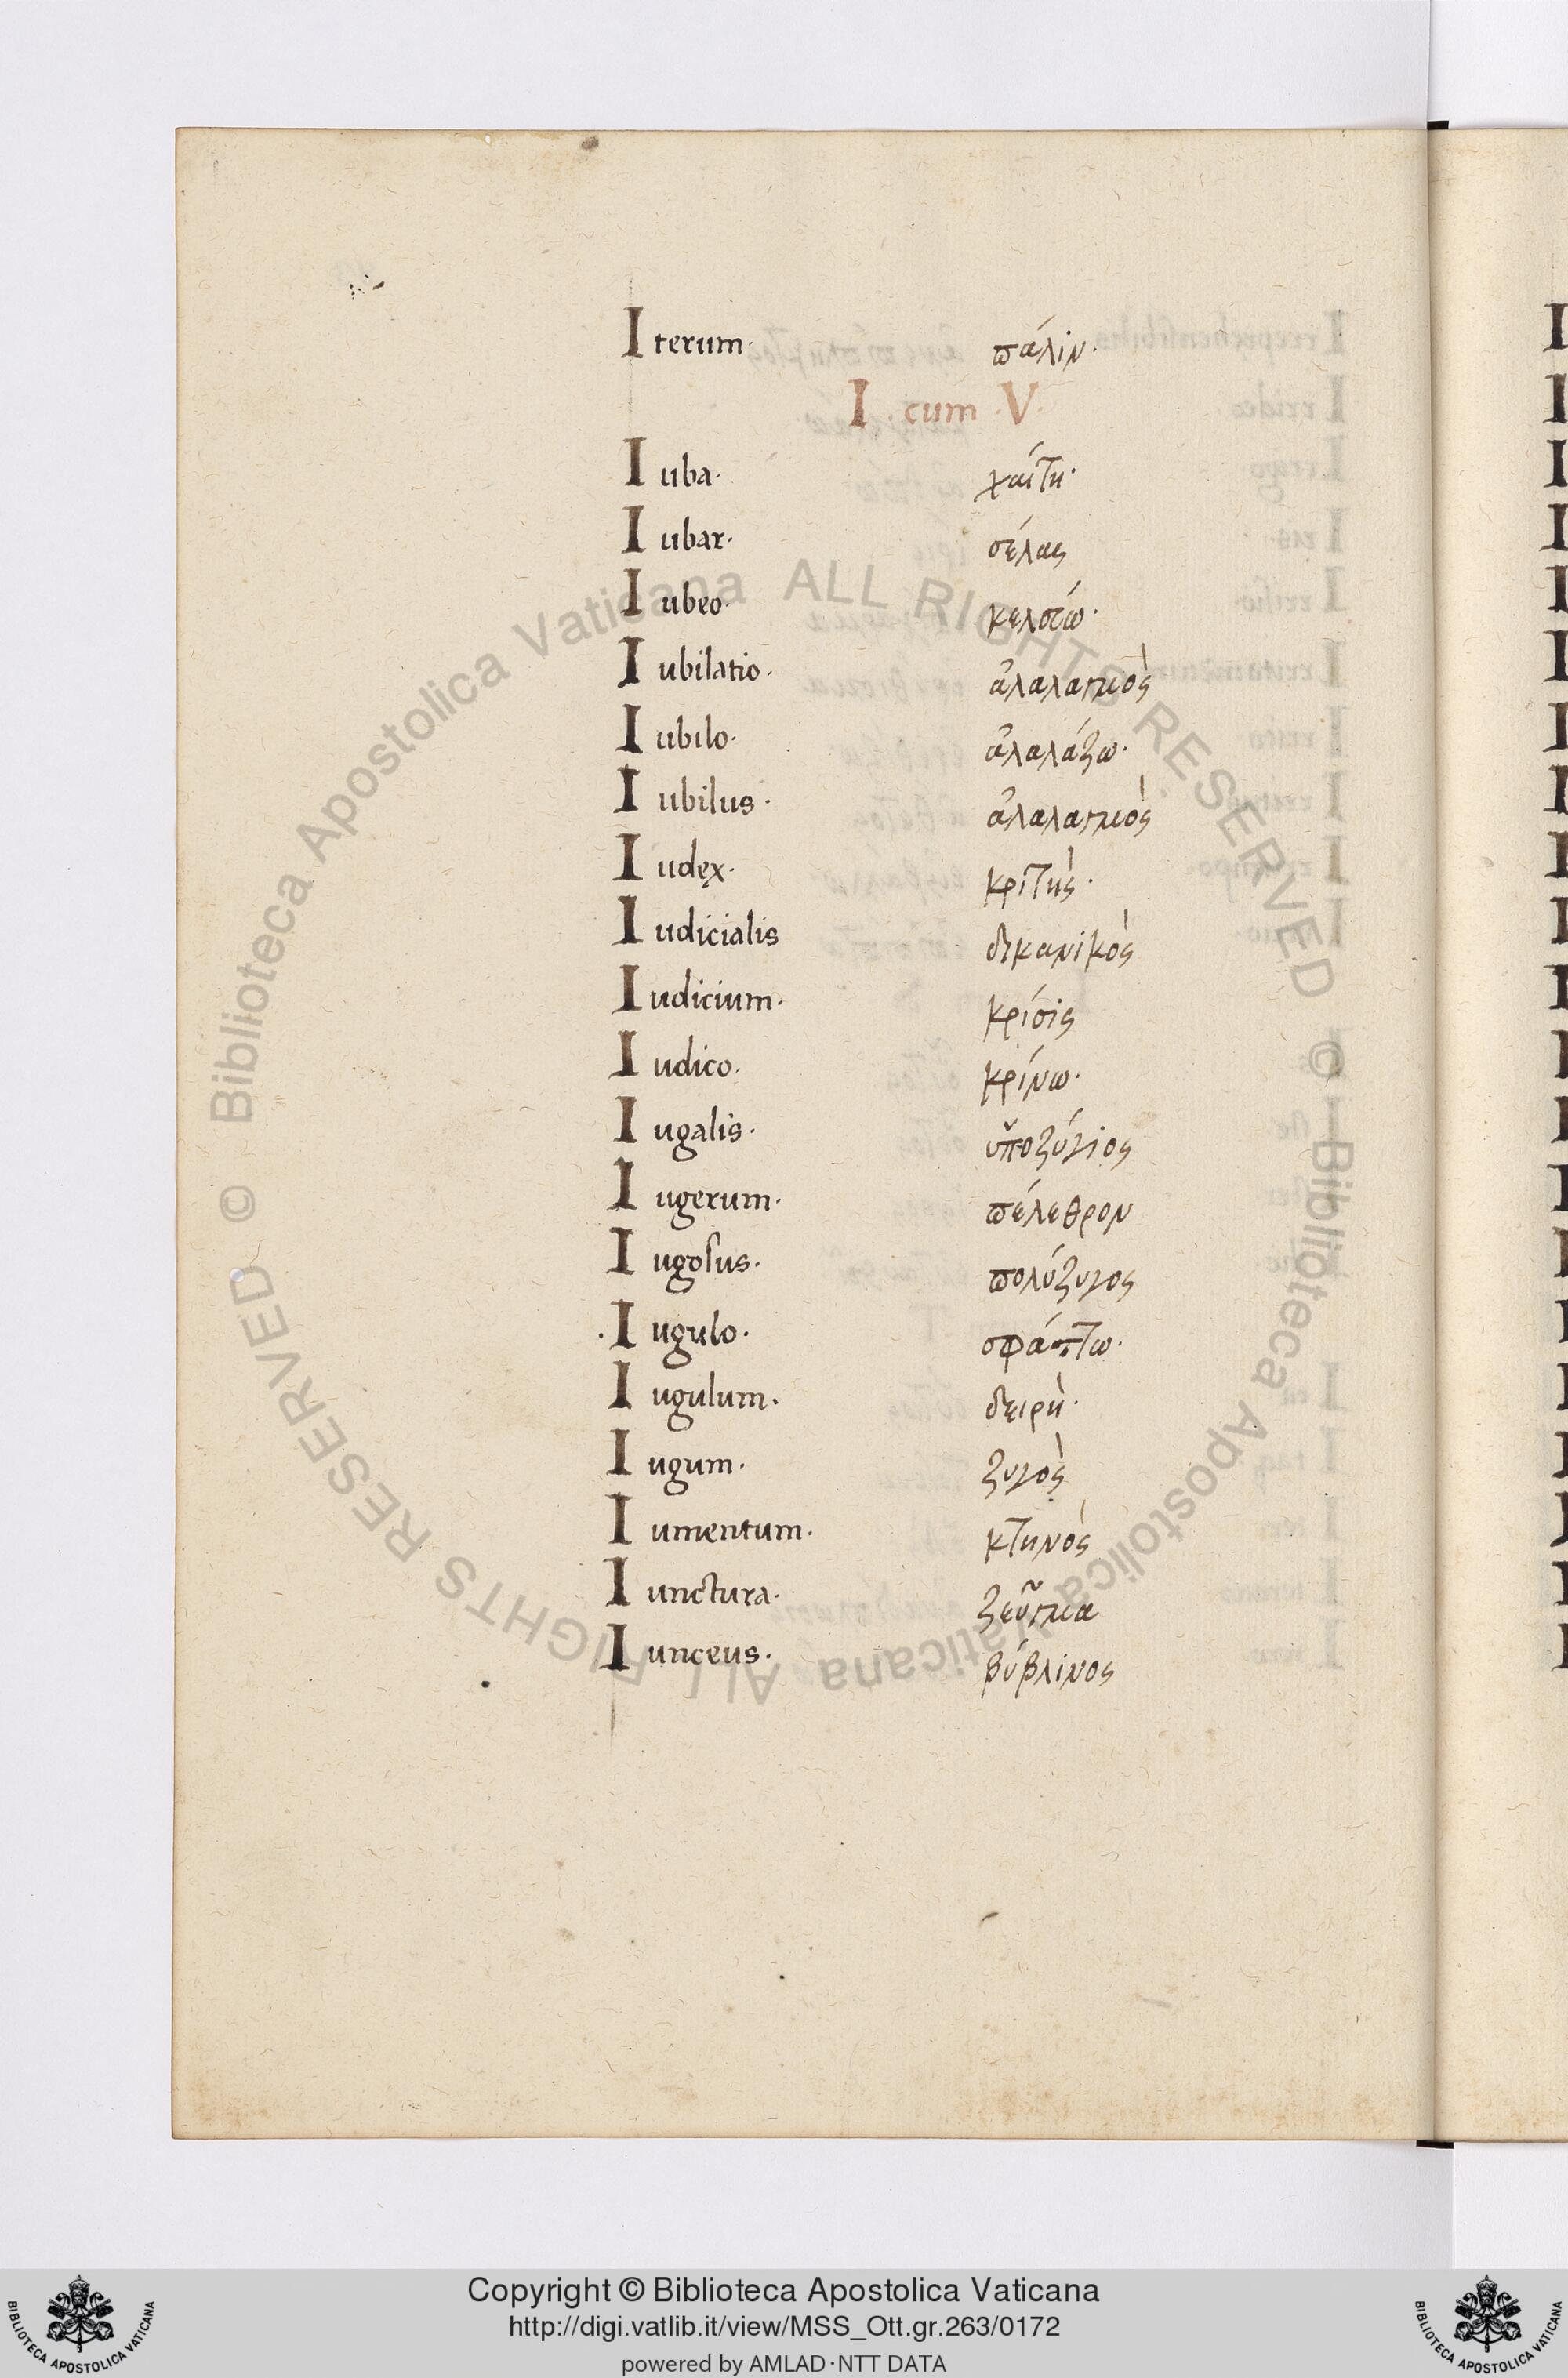 Iterum· πάλιν·
I cum ·V·
Iuba· χαίτη·
Iubar· σέλας
Iubeo· κελεύω·
Iubilatio· ἀλαλαγμὸς
Iubilo· ἀλαλάζω·
Iubilus· ἀλαλαγμὸς
Iudex· κριτὴς·
Iudicialis δικανικὸς
Iudicium· κρίσις
Iudico· κρίνω·
Iugalis· ὑποζύγιος
Iugerum· πέλεθρον
Iugosus· πολύζυγος
Iugulo· σφάττω·
Iugulum· δειρὴ·
Iugum· ζυγὸς
Iumentum· κτηνὸς
Iunctura· ζεῦγμα
Iunceus· βύβλινος
© Biblioteca Apostolica Vaticana ALL RIGHTS RESERVED © Biblioteca Apostolica Vaticana ALL RIGHTS RESERVED
Copyright © Biblioteca Apostolica Vaticana
http://digi.vatlib.it/view/MSS_Ott.gr.263/0172
powered by AMLAD·NTT DATA
BIBLIOTECA APOSTOLICA VATICANA
BIBLIOTECA APOSTOLICA VATICANA